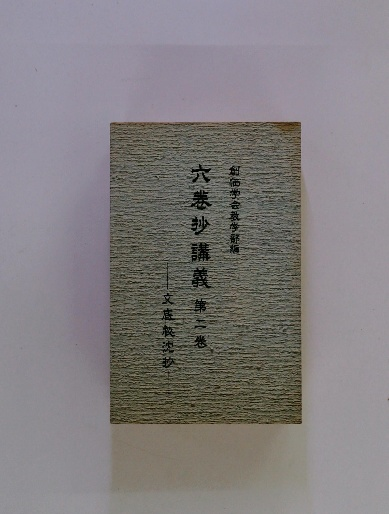 創価学会教学部編
六巻抄講義 第二巻
——文底秘沈抄——